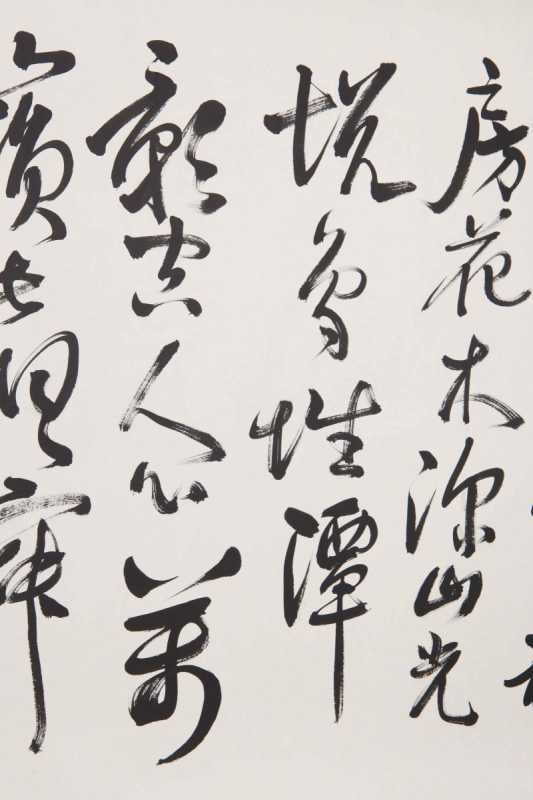 房花木深山光
悦鳥性潭
影空人心萬
籟此俱寂